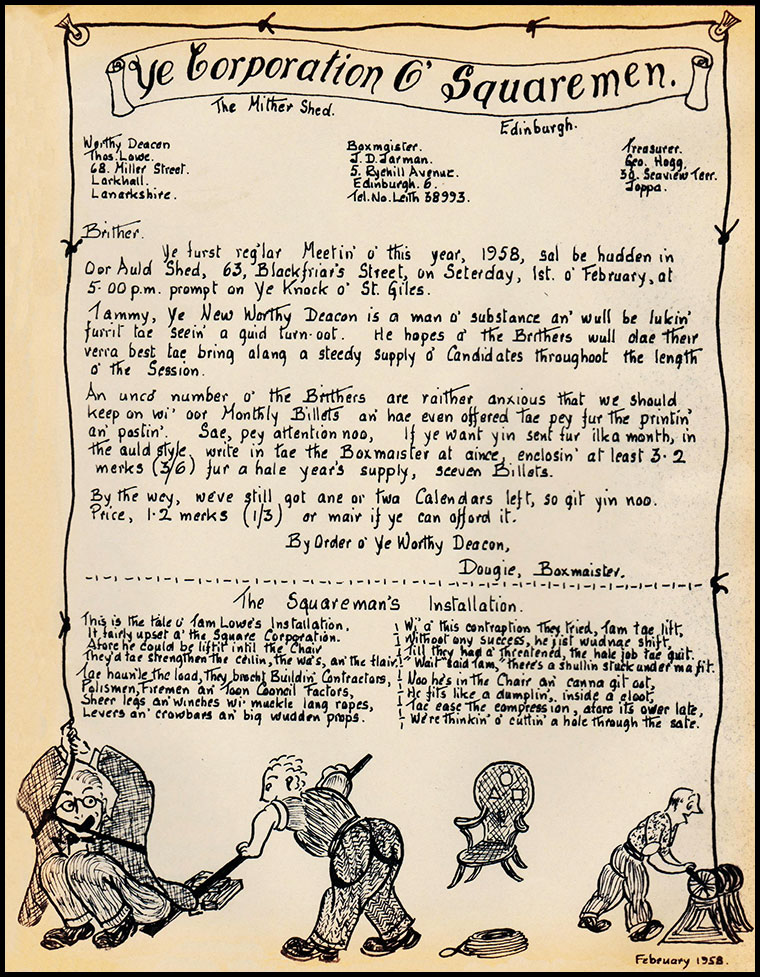 Ye Corporation O' Squaremen.
The Mither Shed.
Edinburgh.
Worthy Deacon
Thos. Lowe.
68. Miller Street.
Larkhall.
Lanarkshire.
Boxmaister.
J. D. Jarman.
5. Ryehill Avenue.
Edinburgh. 6.
Tel. No. Leith 38993.
Treasurer.
Geo. Hogg.
30. Seaview Terr.
Joppa.
Brither.
Ye furst reg'lar Meetin' o' this year, 1958, sal be hudden in
Oor Auld Shed, 63, Blackfriar's Street, on Seterday, 1st. o' February, at
5-00 p.m. prompt on Ye Knock o' St. Giles.
Tammy, Ye New Worthy Deacon is a man o' substance an' wull be lukin'
furrit tae seein' a guid turn-oot. He hopes a' the Brithers wull dae their
verra best tae bring alang a steedy supply o' Candidates throughoot the length
o' the Session.
An unco number o' the Brithers are raither anxious that we should
keep on wi' oor Monthly Billets an' hae even offered tae pey fur the printin'
an' postin'. Sae, pey attention noo, If ye want yin sent fur ilka month, in
the auld style, write in tae the Boxmaister at aince, enclosin' at least 3·2
merks (3/6) fur a hale year's supply, seeven Billets.
By the wey, we've still got ane or twa Calendars left, so git yin noo.
Price, 1·2 merks (1/3) or mair if ye can afford it.
By Order o' Ye Worthy Deacon,
Dougie, Boxmaister.
The Squareman's Installation.
This is the tale o' Tam Lowe's Installation.
It fairly upset a' the Square Corporation.
Afore he could be liftit intil the Chair
They'd tae strengthen the ceilin, the wa's, an' the flair.
Tae haun'le the load, They brocht Buildin' Contractors,
Polismen, Firemen an' Toon Cooncil Factors,
Sheer legs an' winches wi' muckle lang ropes,
Levers an' crowbars an' big wudden props.
Wi' a' this contraption they tried, Tam tae lift,
Without ony success, he jist wudnae shift,
Till they had a' threatened, the hale job tae quit.
"Wait" said Tam, "there's a shullin stuck under ma fit.
Noo he's in the Chair an' canna git oot,
He fits like a dumplin', inside a cloot,
Tae ease the compression, afore its ower late,
We're thinkin' o' cuttin' a hole through the sate.
February 1958.